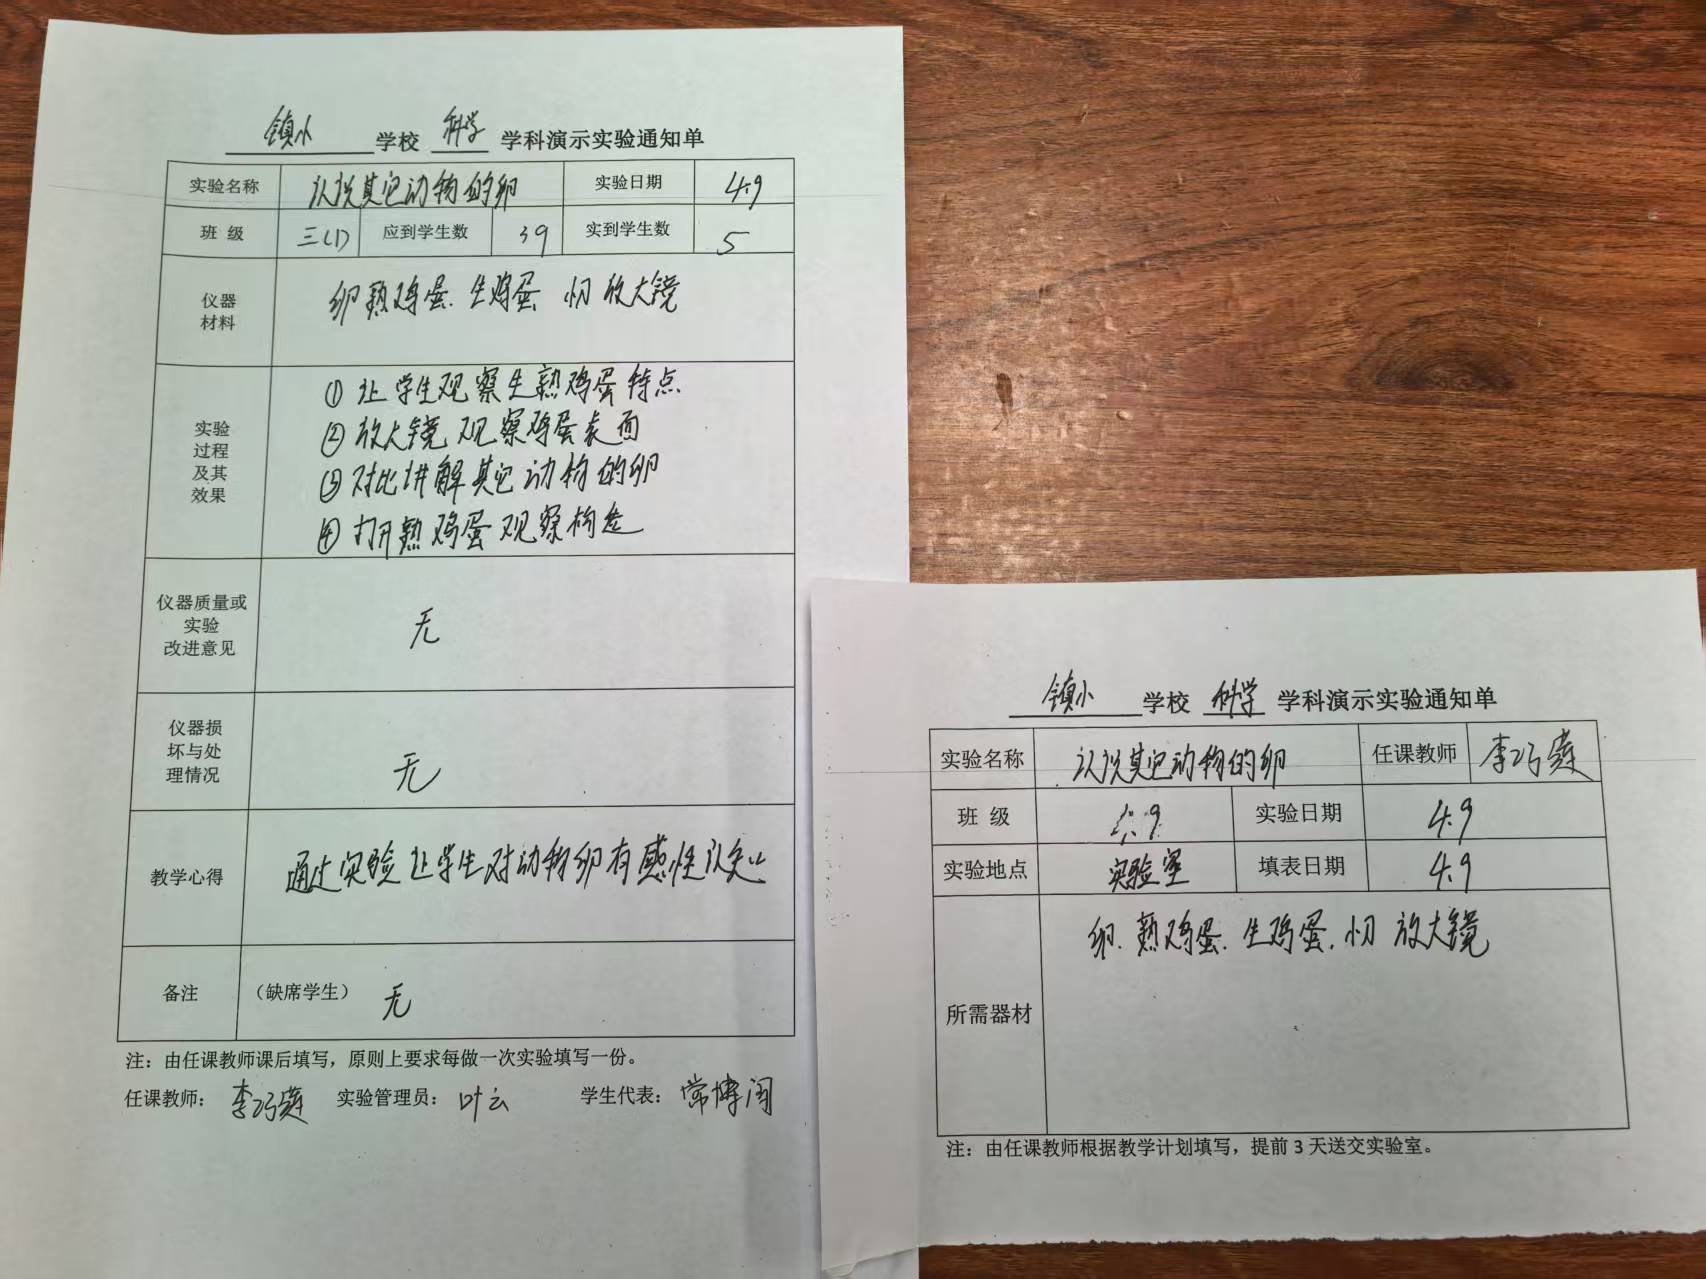 镇小 学校 科学 学科演示实验通知单
实验名称 认识其它动物的卵 实验日期 4.9
班 级 三(1) 应到学生数 39 实到学生数 5
仪器
材料
卵 熟鸡蛋. 生鸡蛋 切 放大镜
实验
过程
及其
效果
① 让学生观察生熟鸡蛋特点
② 放大镜观察鸡蛋表面
③ 对比讲解其它动物的卵
④ 打开熟鸡蛋观察构造
仪器质量或
实验
改进意见
无
仪器损
坏与处
理情况
无
教学心得 通过实验让学生对动物卵有感性认知
备注 (缺席学生) 无
注：由任课教师课后填写，原则上要求每做一次实验填写一份。
任课教师： 李巧莲 实验管理员： 叶云 学生代表： 常博
镇小 学校 科学 学科演示实验通知单
实验名称 认识其它动物的卵 任课教师 李巧莲
班 级 实验日期 4.9
实验地点 实验室 填表日期 4.9
所需器材
卵. 熟鸡蛋. 生鸡蛋. 切 放大镜
注：由任课教师根据教学计划填写，提前 3 天送交实验室。